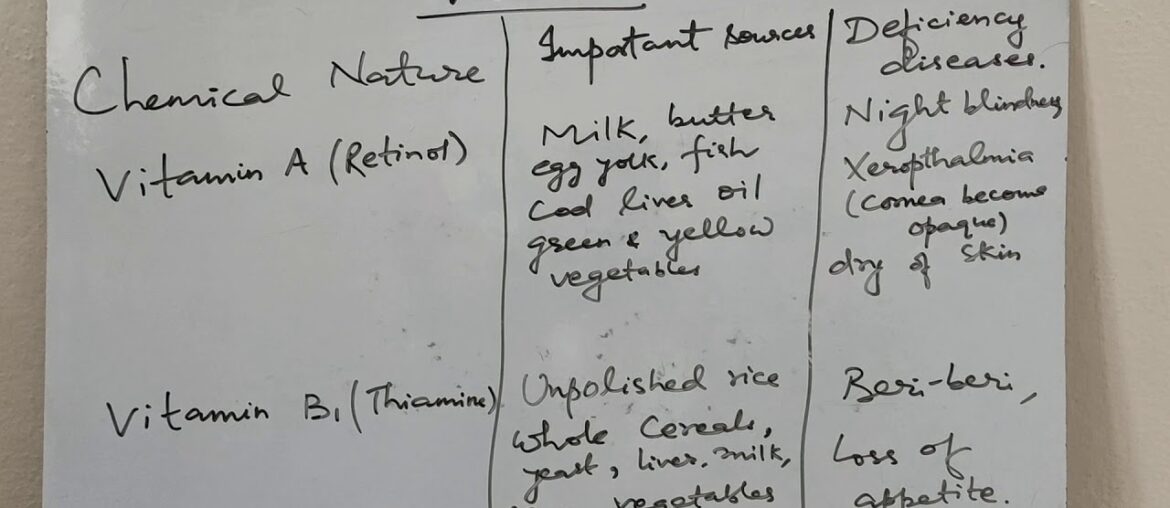 Chemical Nature
Important sources
Deficiency
diseases.
Vitamin A (Retinol)
Milk, butter
egg yolk, fish
Cod liver oil
green & yellow
vegetables
Night blindness
Xeropthalmia
(Cornea become
opaque)
dry of skin
Vitamin B₁ (Thiamine)
Unpolished rice
whole Cereals,
yeast, liver, milk,
vegetables
Beri-beri,
Loss of
appetite.